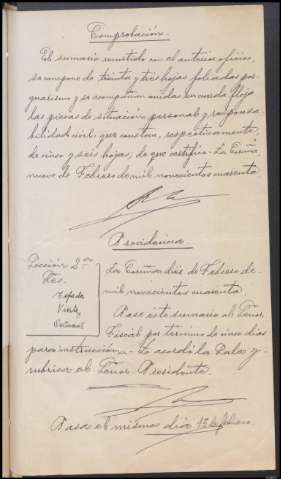 Comprobación.
El sumario remitido con el anterior oficio,
se compone de treinta y tres hojas foliadas por
guarismo y se acompañan unidas en cuerda floja
las piezas de situación personal y responsa-
bilidad civil, que constan, respectivamente,
de cinco y seis hojas, de que certifico. La Coruña,
nueve de Febrero de mil novecientos cuarenta
Providencia
Sección 2ª
Sres.
La Coruña diez de Febrero de
mil novecientos cuarenta
Pase este sumario al Señor
Fiscal por término de cinco días
para instrucción. Lo acordó la Sala y
rubrica el Señor Presidente.
Pasa el mismo día 15 de febrero